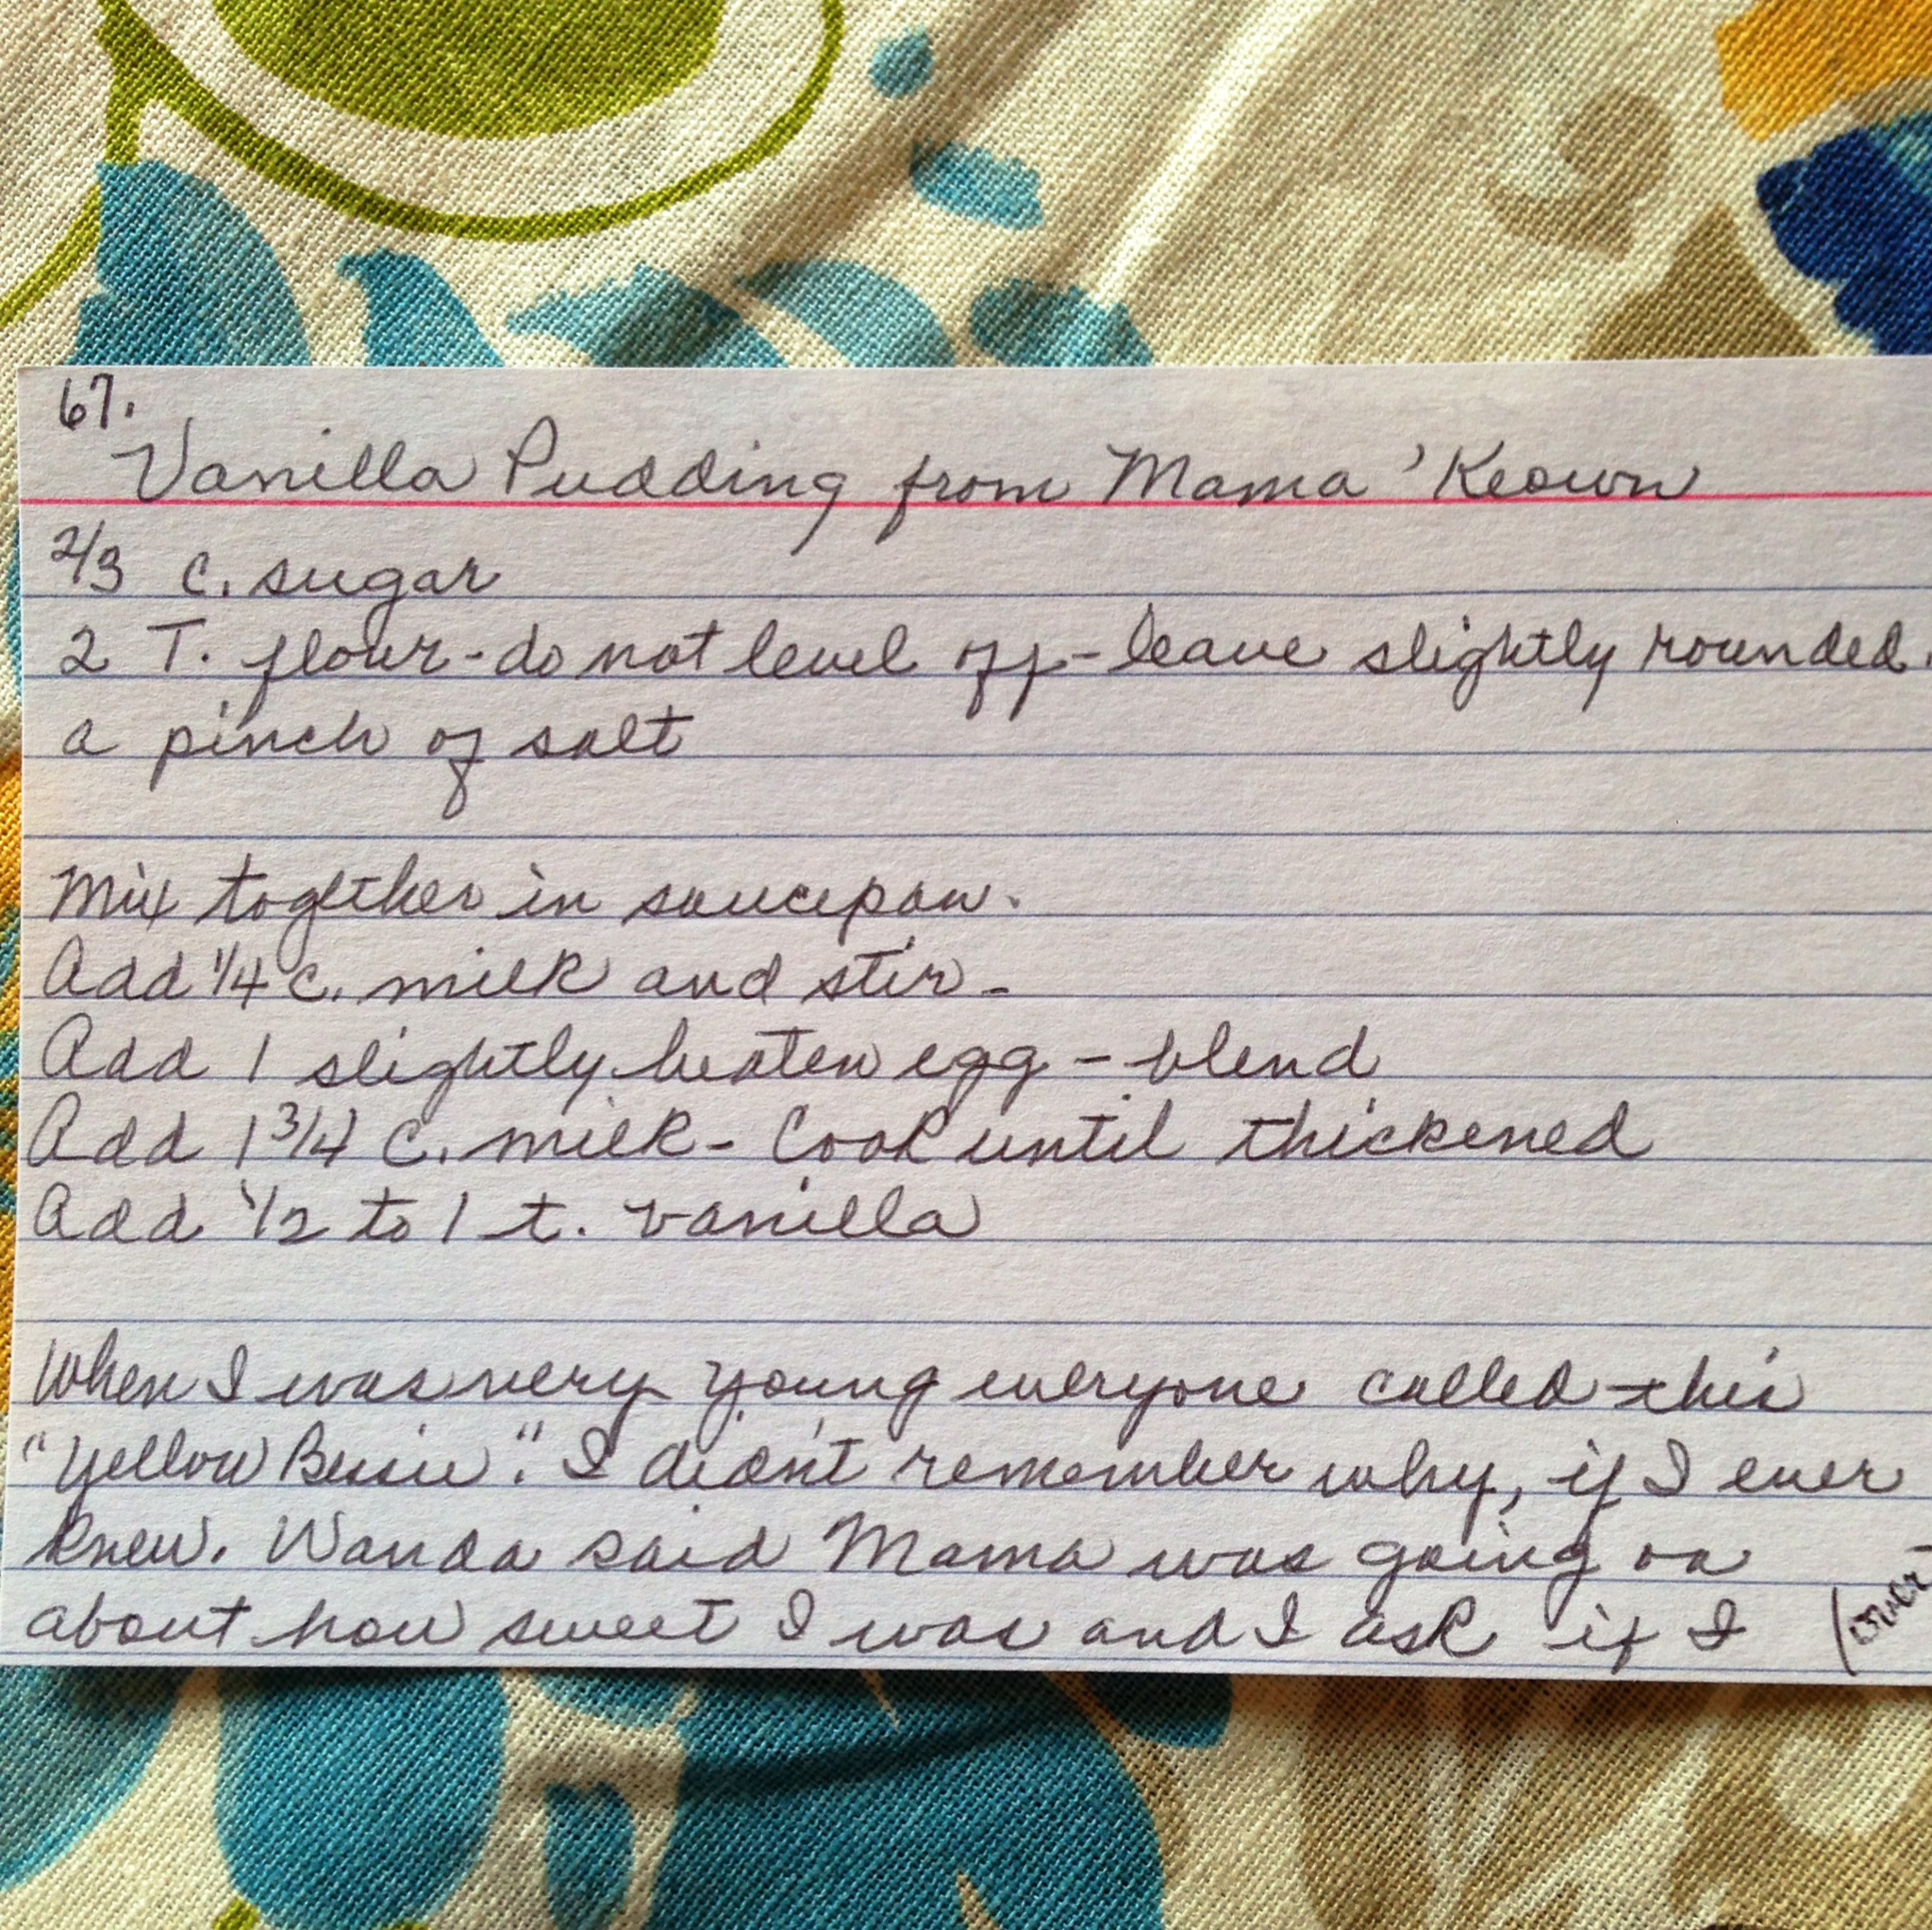 67.
Vanilla Pudding from Mama 'Keown
2/3 c. sugar
2 T. flour - do not level off - leave slightly rounded.
a pinch of salt
Mix together in saucepan.
Add 1/4 c. milk and stir -
Add 1 slightly beaten egg - blend
Add 1 3/4 c. milk - Cook until thickened
Add 1/2 to 1 t. vanilla
When I was very young everyone called this
"Yellow Bessie". I didn't remember why, if I ever
knew. Wanda said Mama was going on
about how sweet I was and I ask if I (over